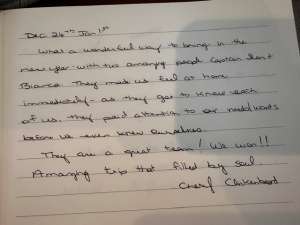 Dec 26th Jan 1st
What a wonderful way to bring in the
new year with two amazing people Captain and
Bianca. They made us feel at home
immediately - as they got to know each
of us - they paid attention to our needs/wants
before we even knew ourselves
They are a great team! We won!!
Amazing trip that filled my soul
Cheryl